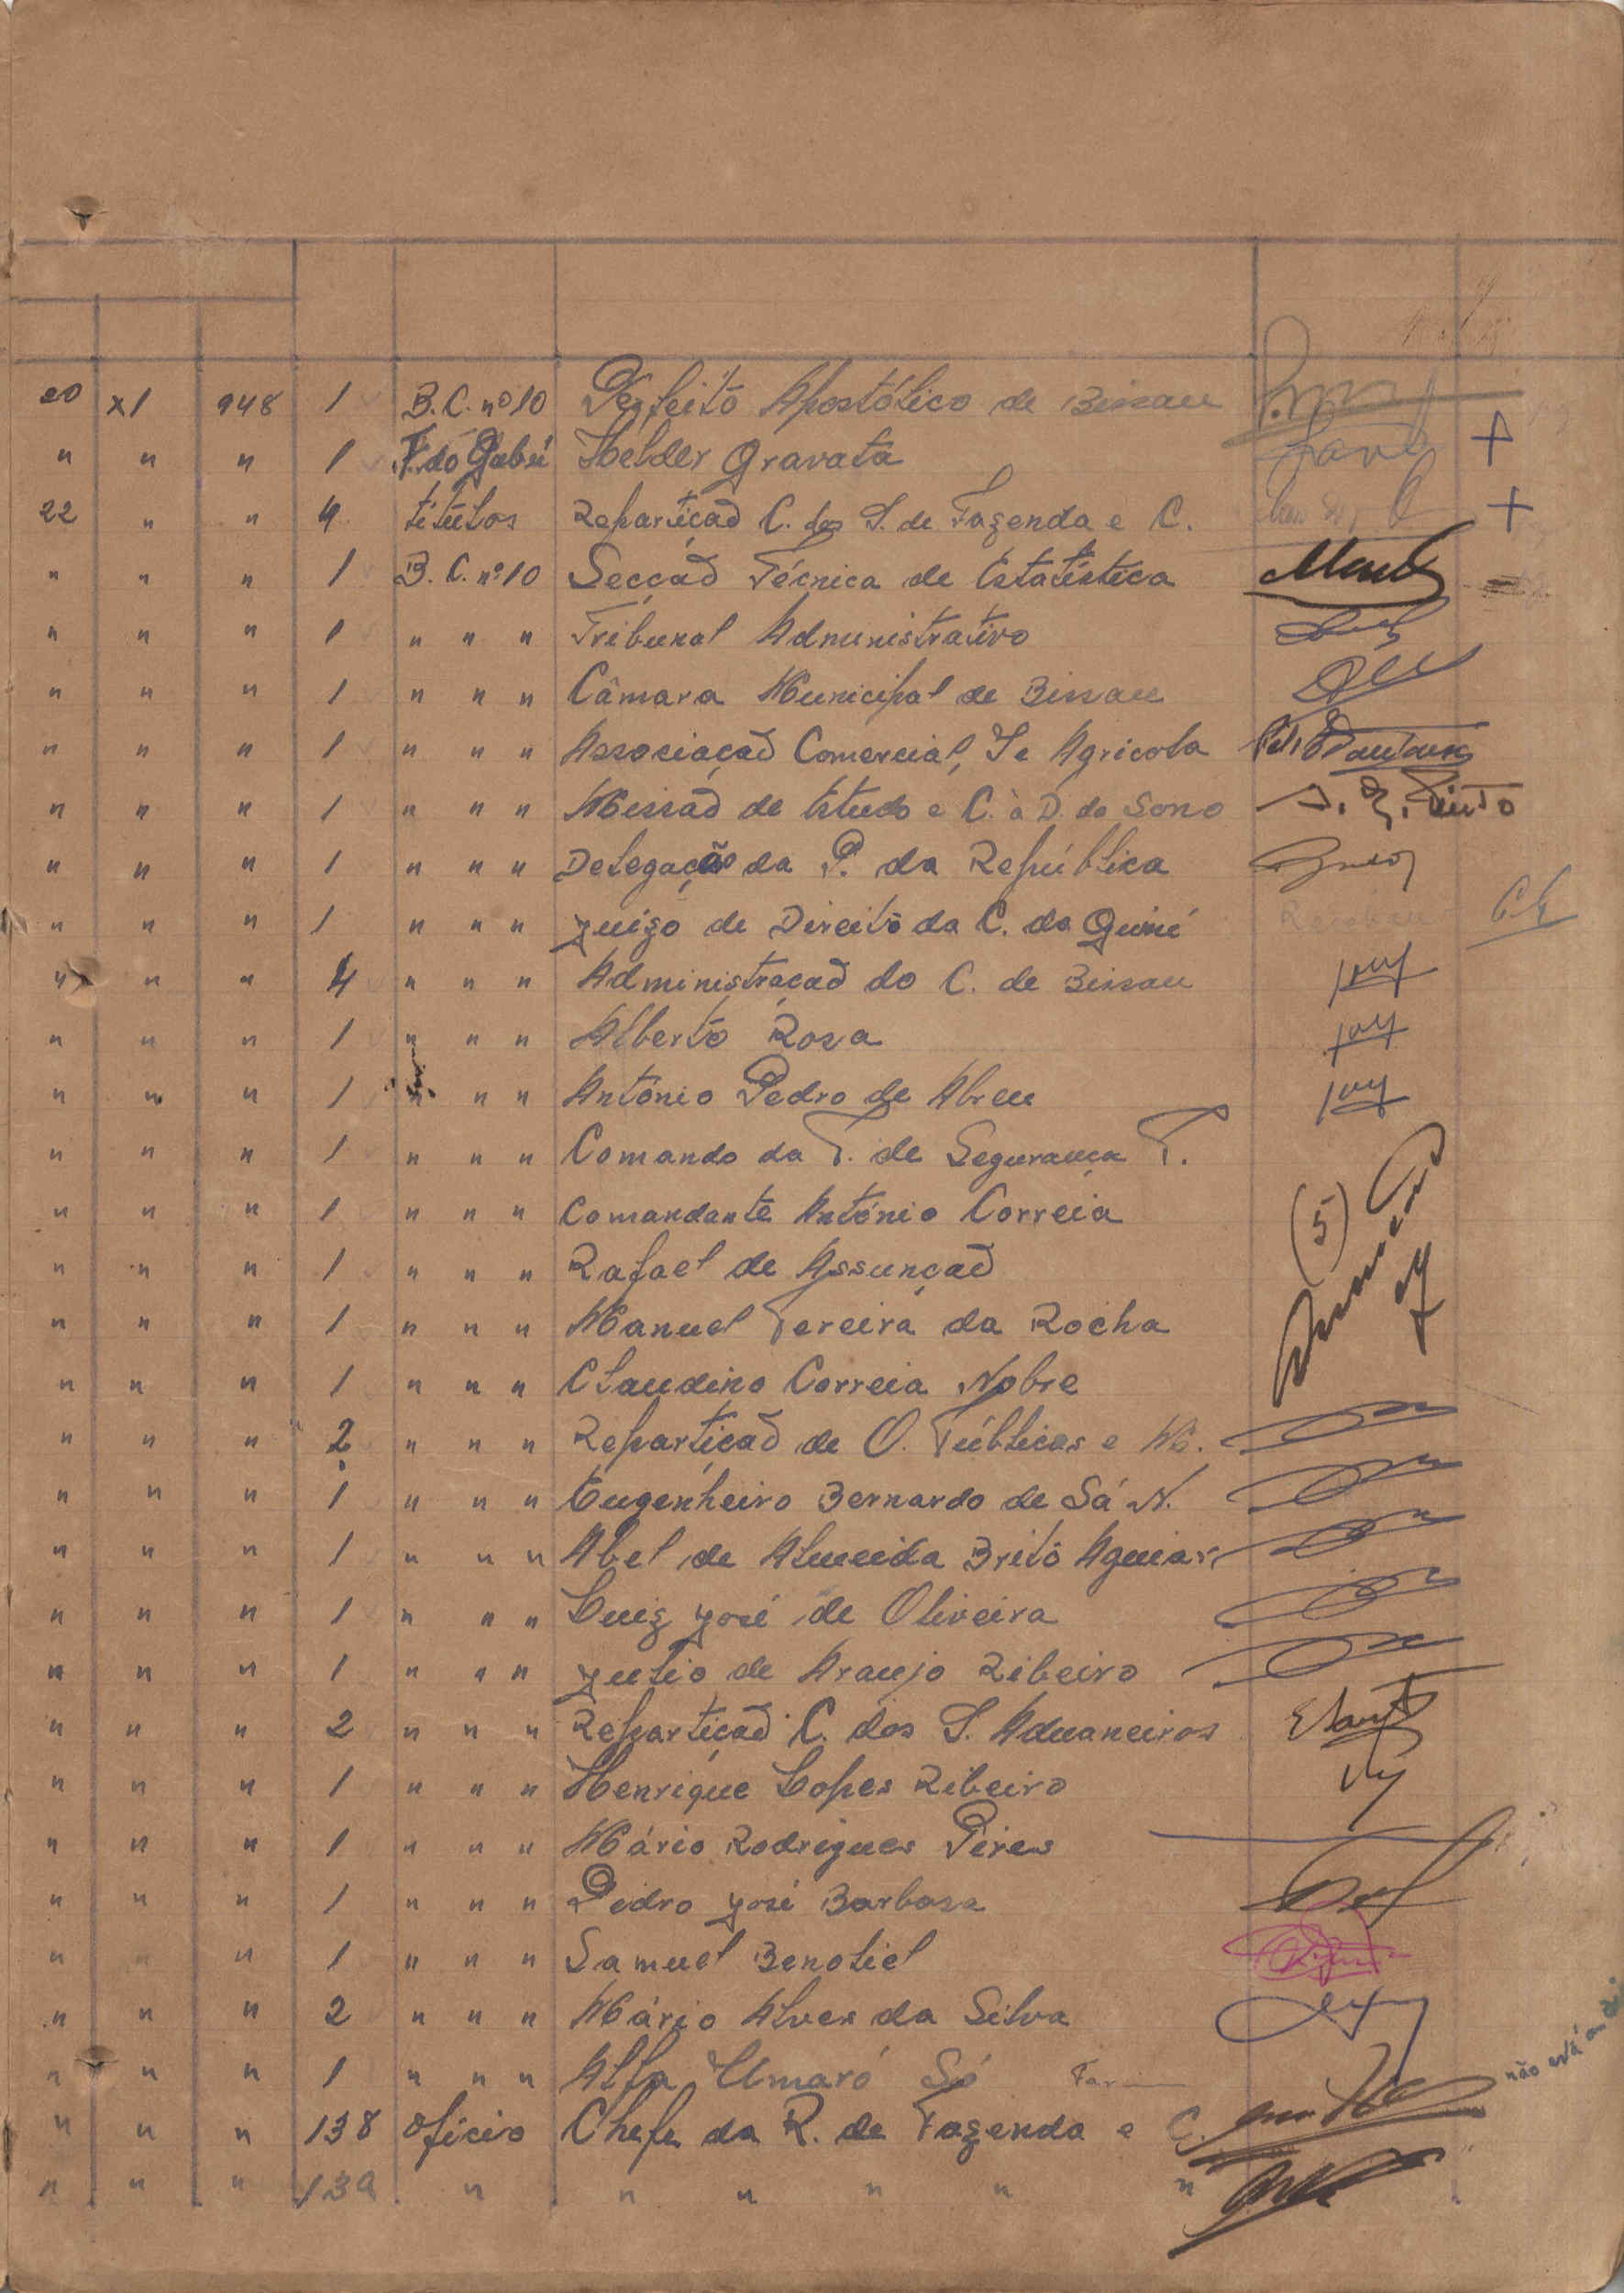 20 XI 948 1 B.C. nº 10 Perfeito Apostólico de Bissau
" " " 1 F. do Gabú Helder Gravata +
22 " " 4 titulos Repartiçaõ C. dos S. de Fazenda e C. +
" " " 1 B.C. nº 10 Secçaõ Técnica de Estatística
" " " 1 " " " Tribunal Administrativo
" " " 1 " " " Câmara Municipal de Bissau
" " " 1 " " " Associaçaõ Comercial, I e Agricola
" " " 1 " " " Missaõ de Estudo e C. à D. do Sono J. Z. Pinto
" " " 1 " " " Delegação da P. da República
" " " 1 " " " Juizo de Direito da C. da Guiné
" " " 4 " " " Administraçaõ do C. de Bissau
" " " 1 " " " Alberto Rosa
" " " 1 " " " António Pedro de Abreu
" " " 1 " " " Comando da P. de Segurança P.
" " " 1 " " " Comandante António Correia (5)
" " " 1 " " " Rafael de Assunçaõ
" " " 1 " " " Manuel Pereira da Rocha
" " " 1 " " " Claudino Correia Nobre
" " " 2 " " " Repartiçaõ de O. Públicas e M.
" " " 1 " " " Eugenheiro Bernardo de Sá N.
" " " 1 " " " Abel de Almeida Brito Aguiar
" " " 1 " " " Luiz José de Oliveira
" " " 1 " " " Julio de Araujo Ribeiro
" " " 2 " " " Repartiçaõ C. dos S. Aduaneiros
" " " 1 " " " Henrique Lopes Ribeiro
" " " 1 " " " Mário Rodrigues Pires
" " " 1 " " " Pedro José Barbosa
" " " 1 " " " Samuel Benoliel
" " " 2 " " " Mário Alves da Silva
" " " 1 " " " Alfa Umaró Só não está
" " " 138 oficio Chefe da R. de Fazenda e C.
" " " 139 " " " " " "